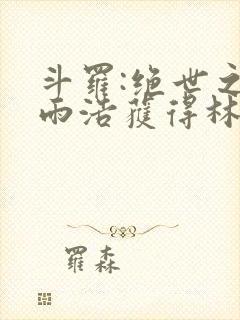 斗羅:绝世之
雨浩獲得林
羅森